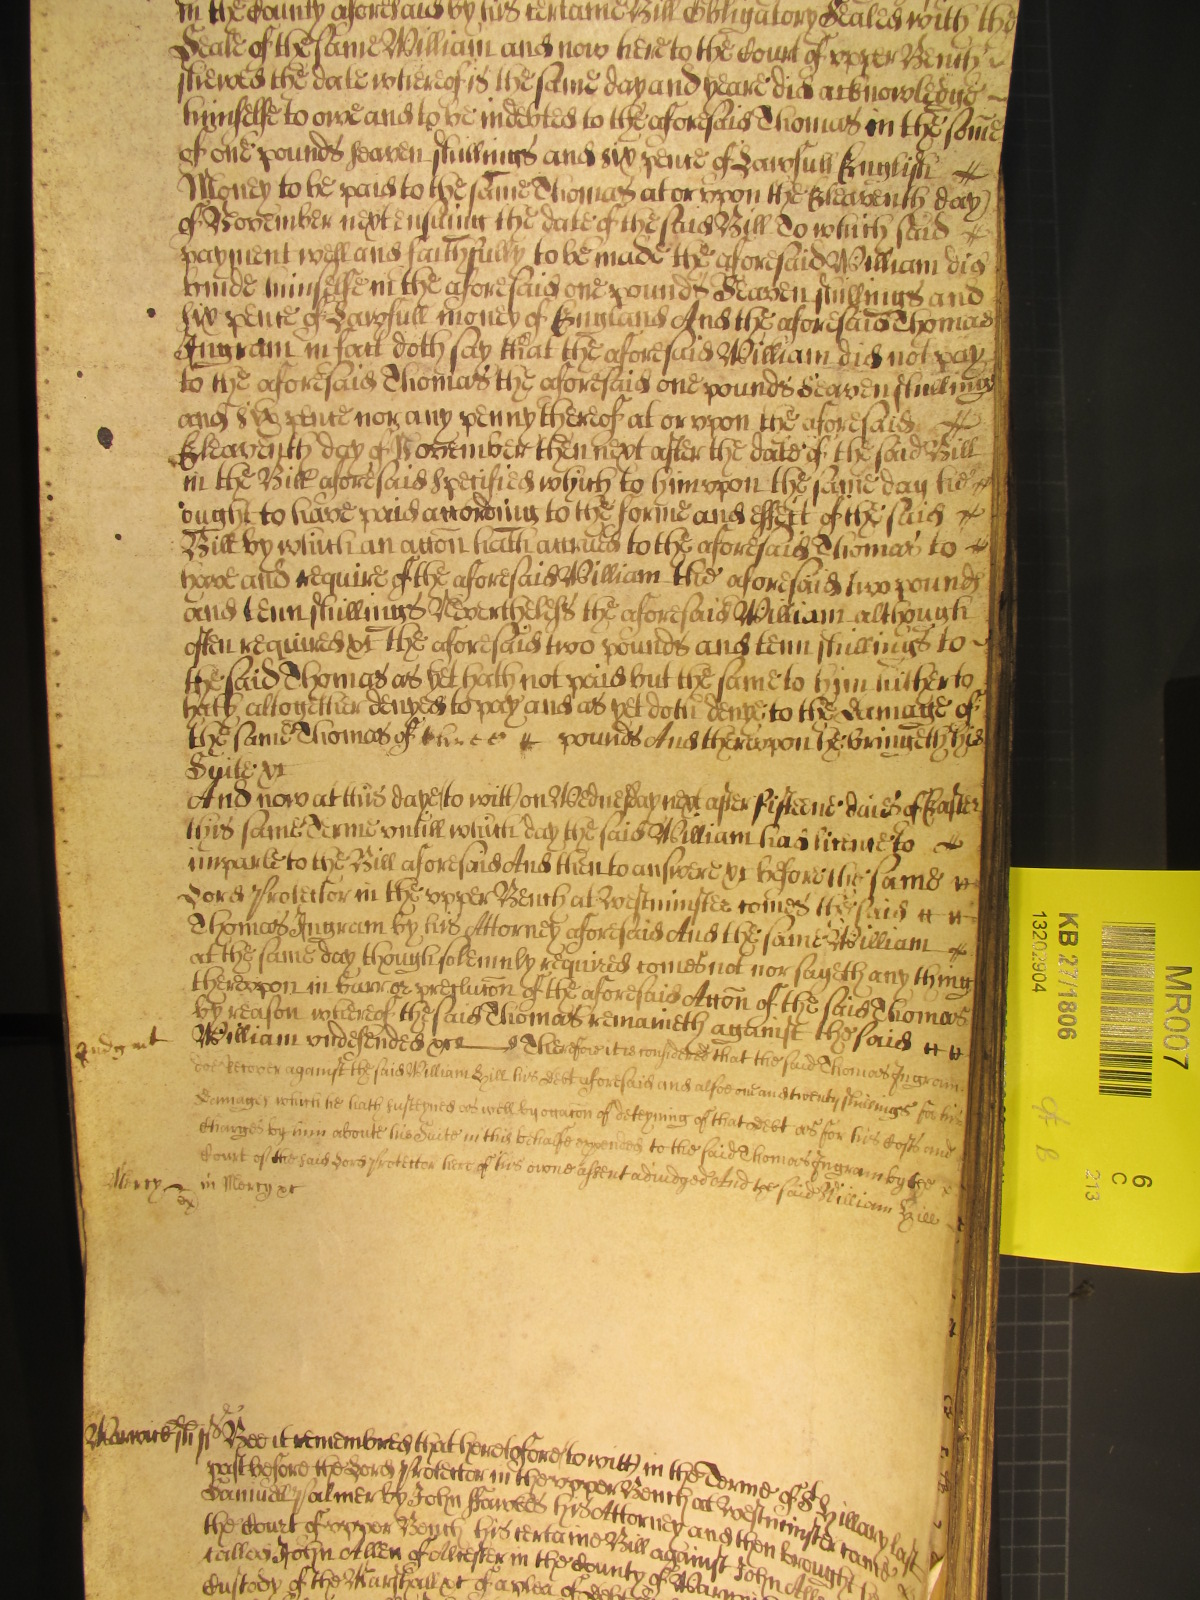 in the County aforesaid by his certaine Bill Obligatory Sealed with the
Seale of the same William and now here to the Court of upper Bench
shewed the date whereof is the same day and yeare did acknowledge
himselfe to owe and to be indebted to the aforesaid Thomas in the some
of one pounds seaven shillings and six pence of Lawfull English
Money to be paid to the same Thomas at or vpon the Eleaventh day
of November next ensuing the date of the said Bill To which said
payment well and faithfully to be made the aforesaid William did
binde himselfe in the aforesaid one pounds Seaven shillings and
six pence of Lawfull money of England And the aforesaid Thomas
Ingram in fact doth say that the aforesaid William did not pay
to the aforesaid Thomas the aforesaid one pounds Seaven shillings
and six pence nor any penny thereof at or vpon the aforesaid
Eleaventh day of November then next after the date of the said Bill
in the Bill aforesaid Specified which to him vpon the same day he
ought to have paid according to the forme and effect of the said
Bill by which an accon hath accrued to the aforesaid Thomas to
have and require of the aforesaid William the aforesaid two pounds
and tenn shillings Nevertheless the aforesaid William although
often required &c the aforesaid two pounds and tenn shillings to
the said Thomas as yet hath not paid but the same to him hitherto
hath altogether denyed to pay and as yet doth deny to the damage of
the same Thomas of three pounds And thereupon he bringeth his
Suite &c
And now at this day (to witt) on Wednesday next after fifteene daies of Easter
this same Terme vntill which day the said William had licence to
imparle to the Bill aforesaid And then to answere &c before the same
Lord Protector in the vpper Bench at Westminster comes the said
Thomas Ingram by his Attorney aforesaid And the same William
at the same day though solemnly required comes not nor sayeth any thing
thereupon in barr or preclucon of the aforesaid Accon of the said Thomas
by reason whereof the said Thomas remaineth against the said
William vndefended &c Therefore it is considered that the said Thomas Ingram
Judgmt
doe recover against the said William Hill his debt aforesaid and alsoe one and twenty shillings for his
damages which he hath susteyned as well by occacon of deteyning of that debt as for his Costs and
Charges by him aboute his Suite in this behalfe expended to the said Thomas Ingram by the
Court of the said Lord Protector here of his owne assent adiudged And the said William Hill
Mercy in Mercy &c
Warwick sh ss Bee it remembred that heretofore (to witt) in the Terme of St Hillary last
past before the Lord Protector in the vpper Bench at Westminster came
Samuell Palmer by John Fawkes his Attorney and then brought
the Court of vpper Bench his certaine Bill against John Alle
called John Allen of Alcester in the County of Warwi
Custody of the Marshall &c of a plea of debt
MR007
KB 27/1806
13202904
6
C
213